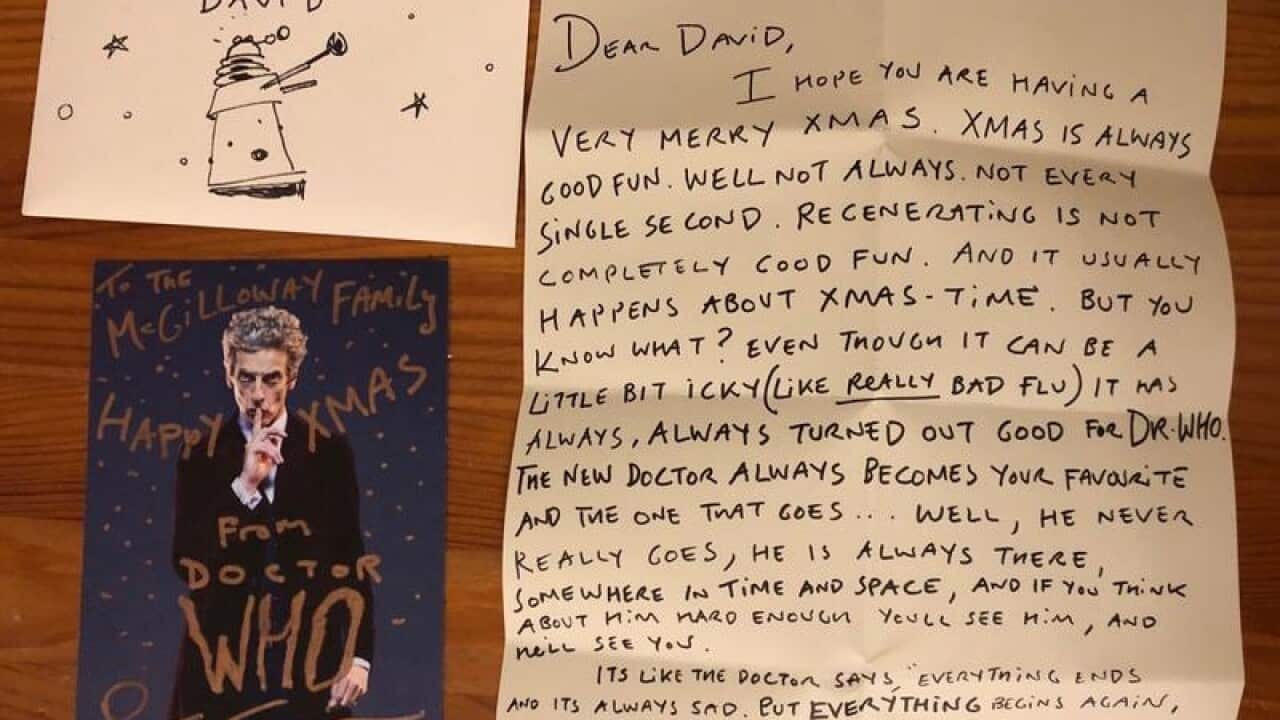 DAVID
TO THE
McGILLOWAY FAMILY
HAPPY XMAS
From
DOCTOR
WHO
DEAR DAVID,
I HOPE YOU ARE HAVING A
VERY MERRY XMAS. XMAS IS ALWAYS
GOOD FUN. WELL NOT ALWAYS. NOT EVERY
SINGLE SECOND. REGENERATING IS NOT
COMPLETELY GOOD FUN. AND IT USUALLY
HAPPENS ABOUT XMAS-TIME. BUT YOU
KNOW WHAT? EVEN THOUGH IT CAN BE A
LITTLE BIT ICKY (LIKE REALLY BAD FLU) IT HAS
ALWAYS, ALWAYS TURNED OUT GOOD FOR DR.WHO.
THE NEW DOCTOR ALWAYS BECOMES YOUR FAVOURITE
AND THE ONE THAT GOES... WELL, HE NEVER
REALLY GOES, HE IS ALWAYS THERE,
SOMEWHERE IN TIME AND SPACE, AND IF YOU THINK
ABOUT HIM HARD ENOUGH YOULL SEE HIM, AND
HELL SEE YOU.
ITS LIKE THE DOCTOR SAYS, "EVERYTHING ENDS
AND ITS ALWAYS SAD. BUT EVERYTHING BEGINS AGAIN,